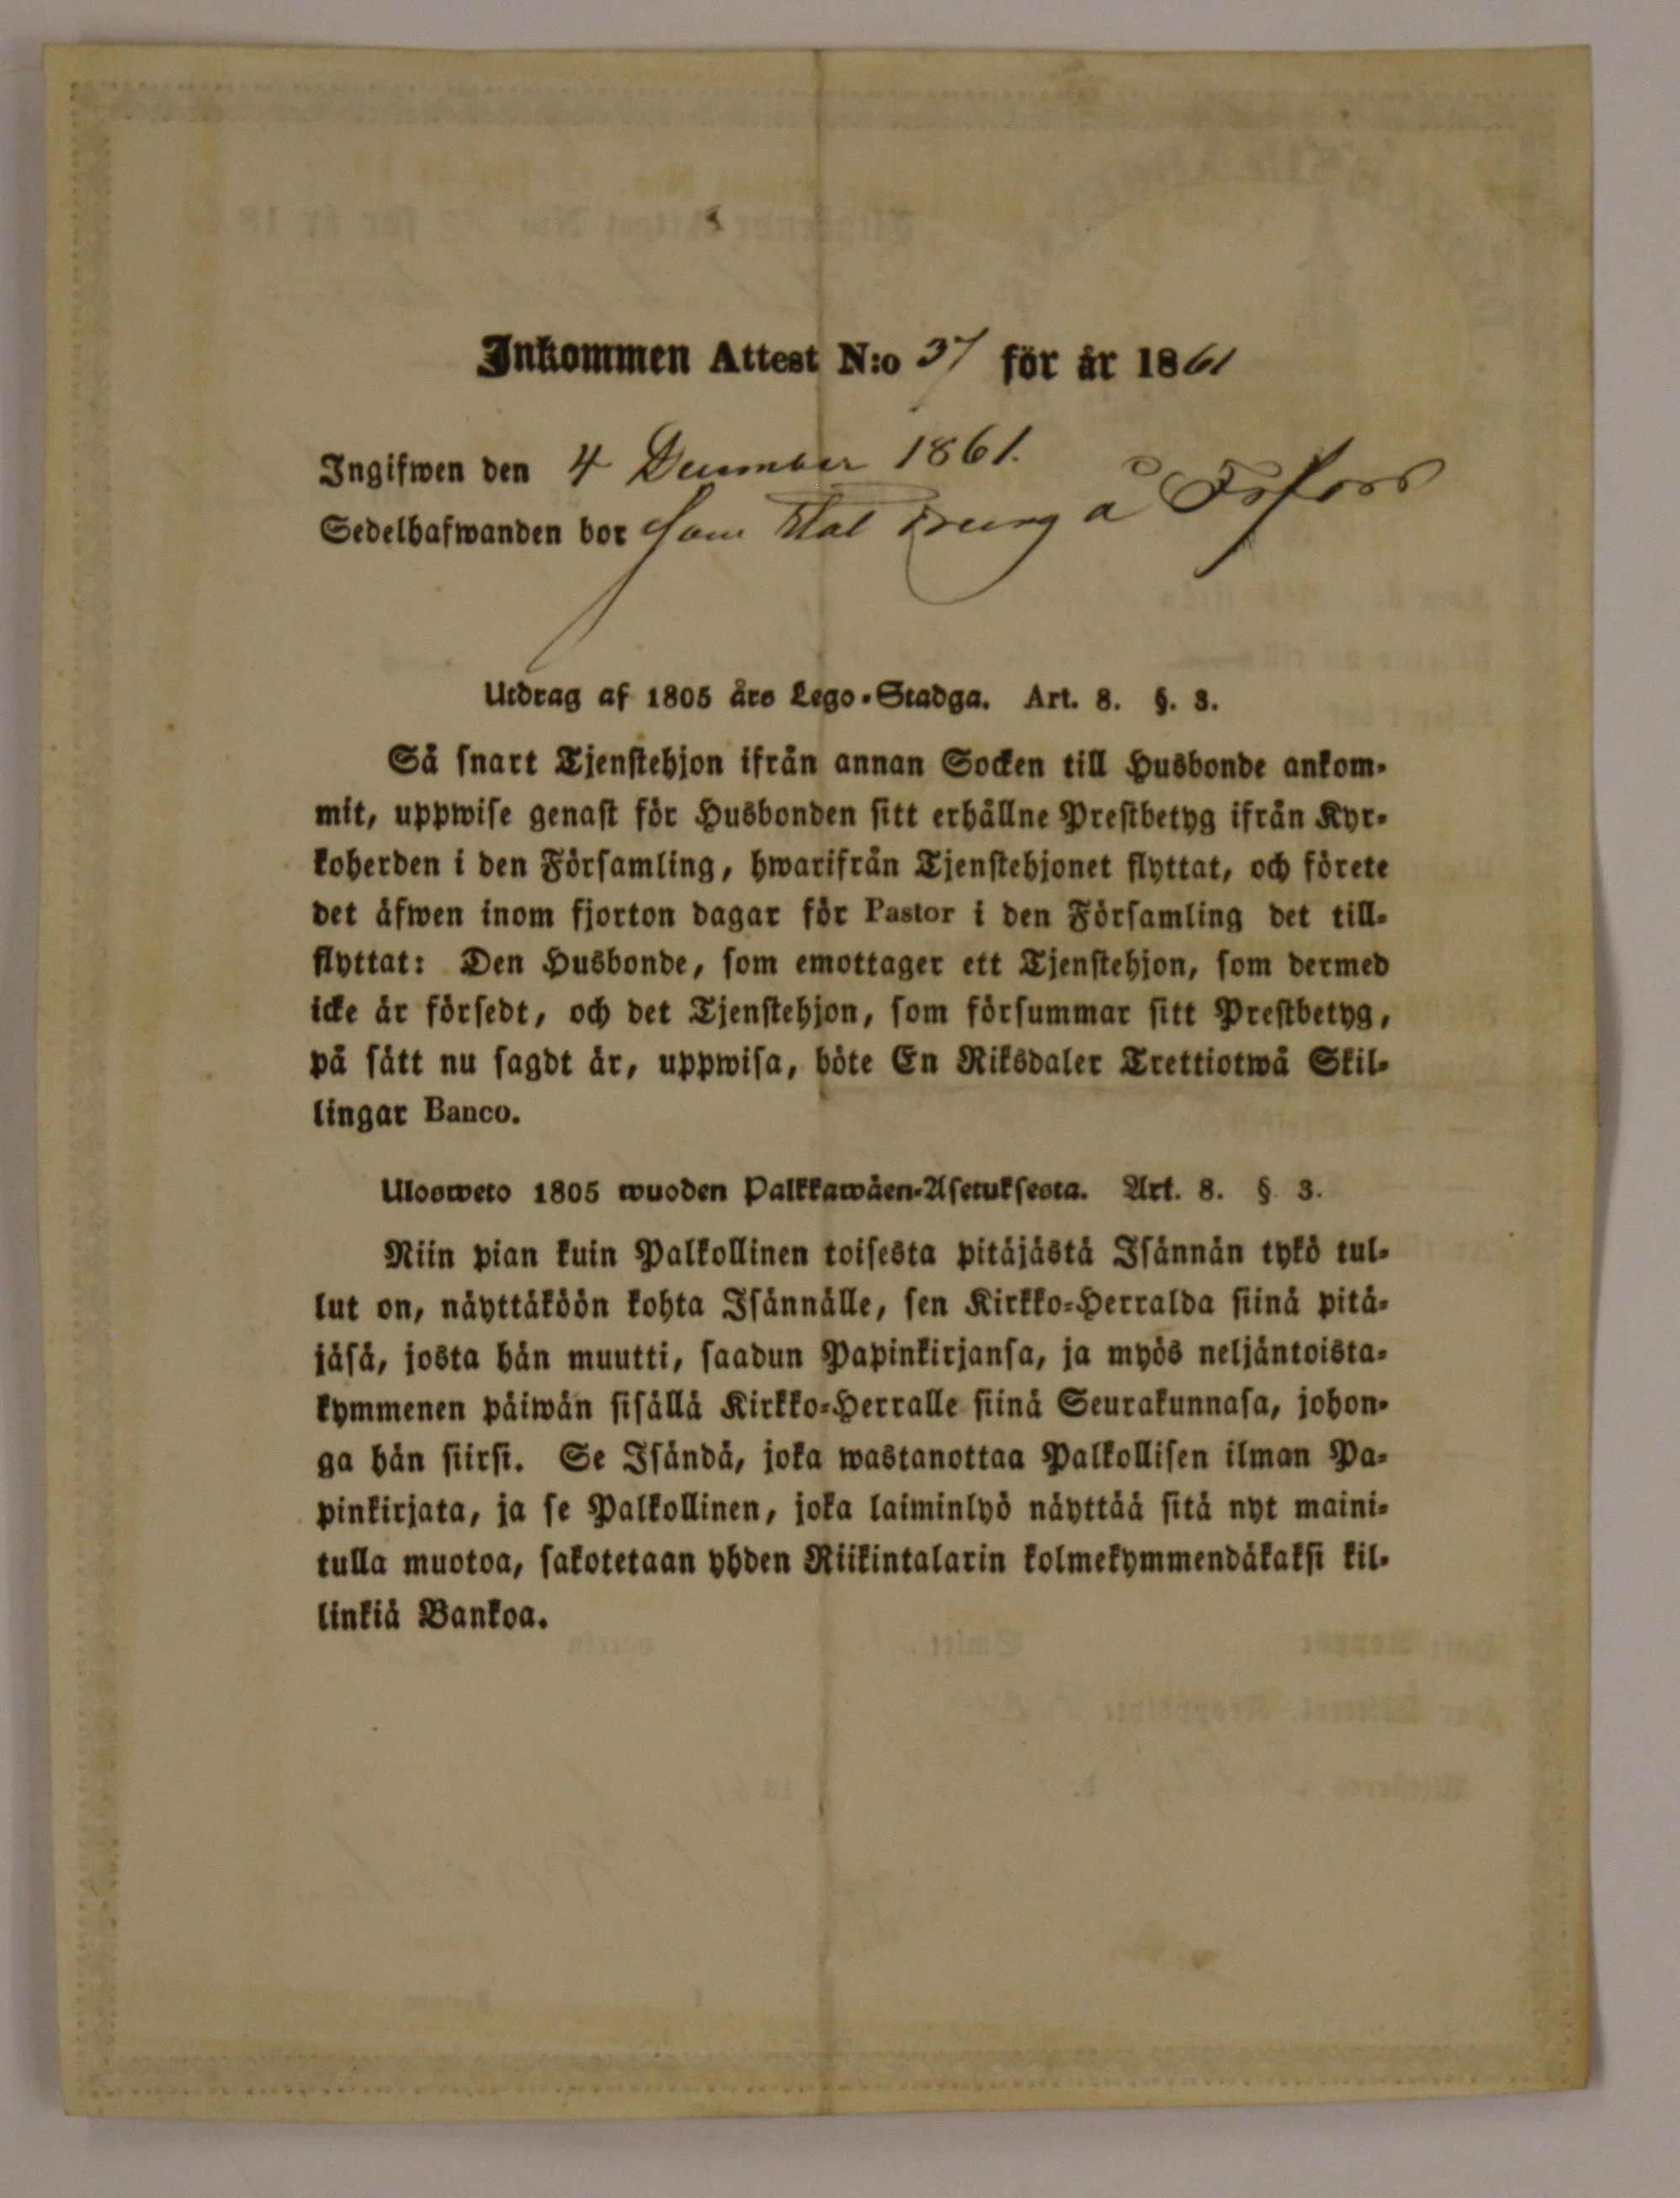 Inkommen Attest N:o 37 för år 1861
Ingifwen den 4 December 1861.
Sedelhafwanden bor som Stal Dreng å Forsfors
Utdrag af 1805 års Lego-Stadga. Art. 8. §. 3.
Så snart Tjenstehjon ifrån annan Socken till Husbonde ankom-
mit, uppwise genast för Husbonden sitt erhållne Prestbetyg ifrån Kyr-
koherden i den Församling, hwarifrån Tjenstehjonet flyttat, och förete
det äfwen inom fjorton dagar för Pastor i den Församling det till-
flyttat: Den Husbonde, som emottager ett Tjenstehjon, som dermed
icke är försedt, och det Tjenstehjon, som försummar sitt Prestbetyg,
på sätt nu sagdt är, uppwisa, böte En Riksdaler Trettiotwå Skil-
lingar Banco.
Ulosweto 1805 wuoden Palkkawäen-Asetuksesta. Art. 8. § 3.
Niin pian kuin Palkollinen toisesta pitäjästä Isännän tykö tul-
lut on, näyttäköön kohta Isännälle, sen Kirkko-Herralda siinä pitä-
jäsä, josta hän muutti, saadun Papinkirjansa, ja myös neljäntoista-
kymmenen päiwän sisällä Kirkko-Herralle siinä Seurakunnasa, johon-
ga hän siirsi. Se Isändä, joka wastanottaa Palkollisen ilman Pa-
pinkirjata, ja se Palkollinen, joka laiminlyö näyttää sitä nyt maini-
tulla muotoa, sakotetaan yhden Riikintalarin kolmekymmendäkaksi kil-
linkiä Bankoa.